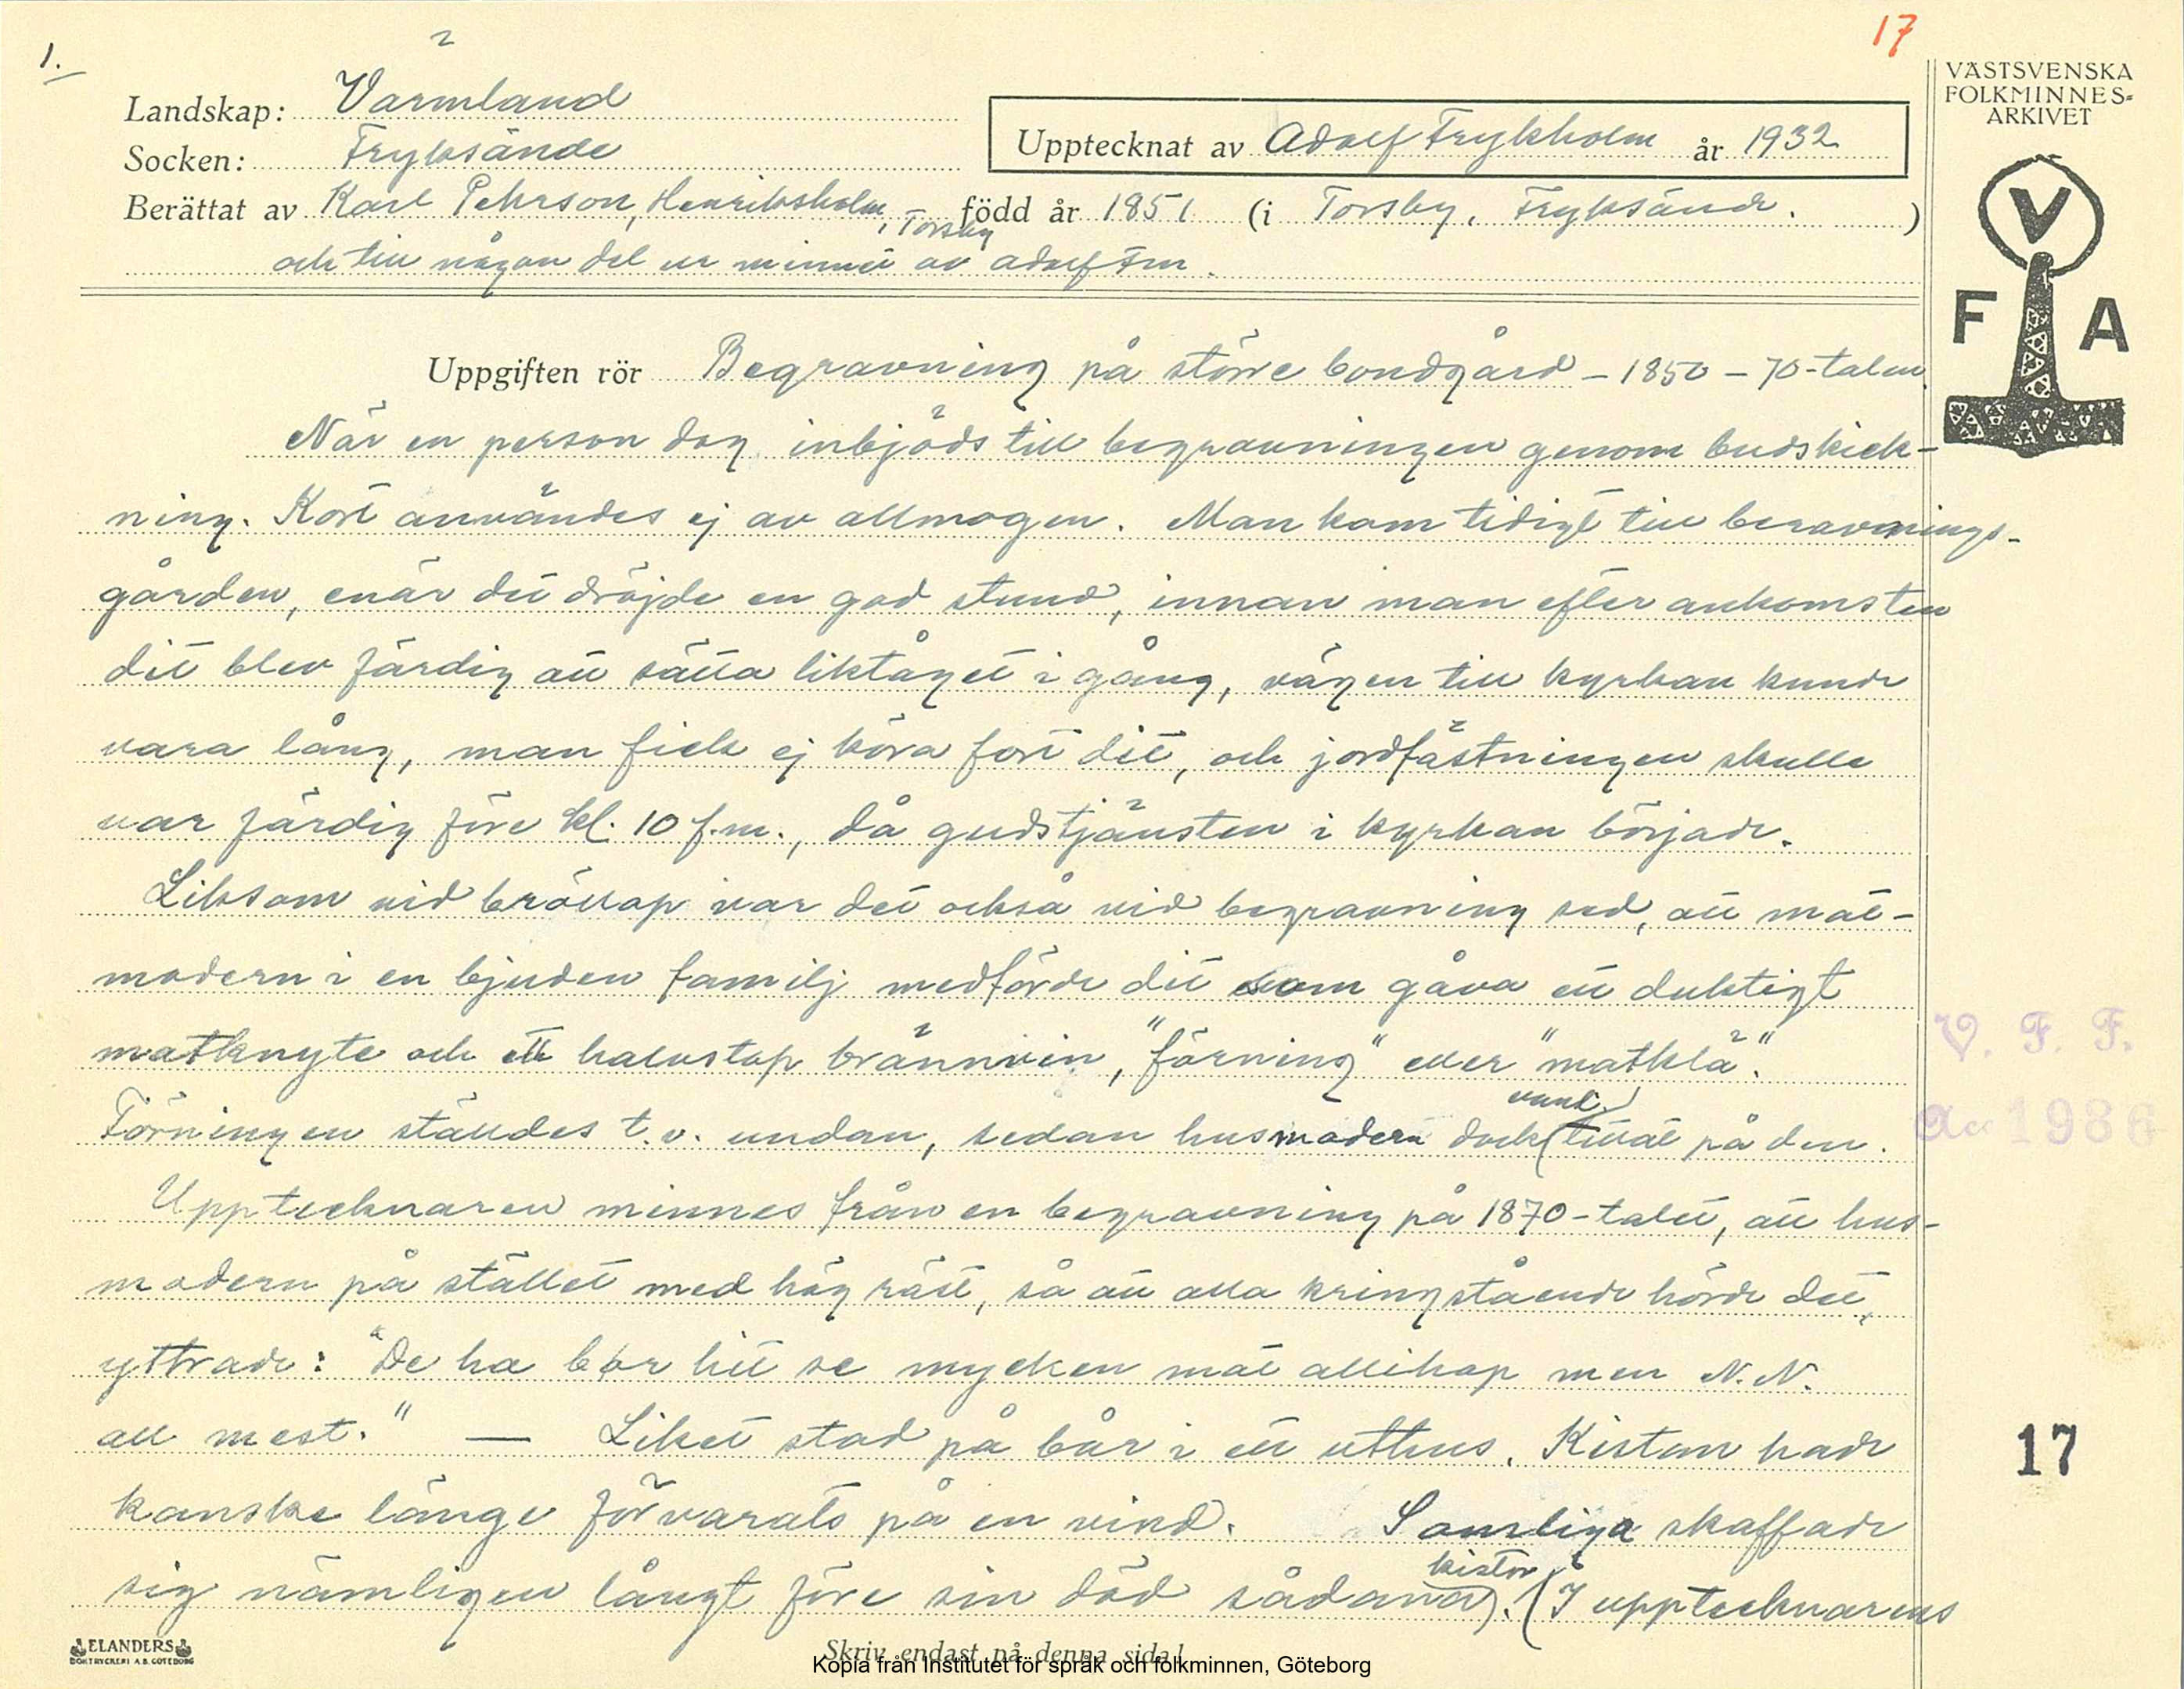 1.
17
VÄSTSVENSKA
FOLKMINNES=
ARKIVET
Landskap: Värmland
Socken: Fryksände
Upptecknat av Adolf Frykholm år 1932
Berättat av Karl Pehrson, Henriksholm, Torsby född år 1851 (i Torsby, Fryksände. )
och till någon del ur minnet av Adolf Fm.
V
F A
Uppgiften rör Begravning på större bondgård – 1850 – 70-talen
När en person dog inbjöds till begravningen genom budskick-
ning. Kort användes ej av allmogen. Man kom tidigt till beravnings-
gården, enär det dröjde en god stund, innan man efter ankomsten
dit blev färdig att sätta liktåget i gång, vägen till kyrkan kunde
vara lång, man fick ej köra fort dit, och jordfästningen skulle
var färdig före kl. 10 f.m., då gudstjänsten i kyrkan började.
Liksom vid bröllop var det också vid begravning sed, att mat-
modern i en bjuden familj medförde dit som gåva ett duktigt
matknyte och ett halvstop brännvin, "förning" eller "matklä".
Förningen ställdes t.v. undan, sedan husmodern dock (vanl.) tittat på den.
Upptecknaren minnes från en begravning på 1870-talet, att hus-
modern på stället med hög röst, så att alla kringstående hörde det,
yttrade: "De ha bör hit se mycken mat allihop men N.N.
all mest." — Liket stod på bår i ett uthus. Kistan hade
kanske länge förvarats på en vind. Somliga skaffade
sig nämligen långt före sin död sådana kistor). (I upptecknarens
V. F. F.
Acc 1986
17
ELANDERS
BOKTRYCKERI A.B. GÖTEBORG
Skriv endast på denna sida!
Kopia från Institutet för språk och folkminnen, Göteborg